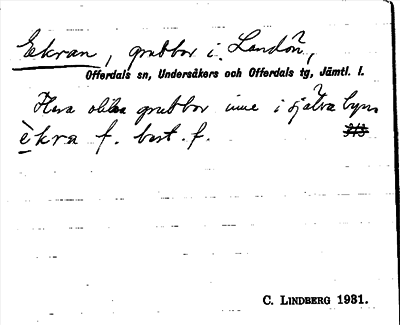 Ekran, grubbor i Landön,
Offerdals sn, Undersåkers och Offerdals tg, Jämtl. l.
Flera olika grubbor inne i själva byn.
èkra f. best. f.
3/3
C. LINDBERG 1931.